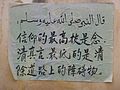 قال النبي صلى الله عليه وسلم
信仰的最高枝是念
清真言最低的是清
除道路上的障碍物